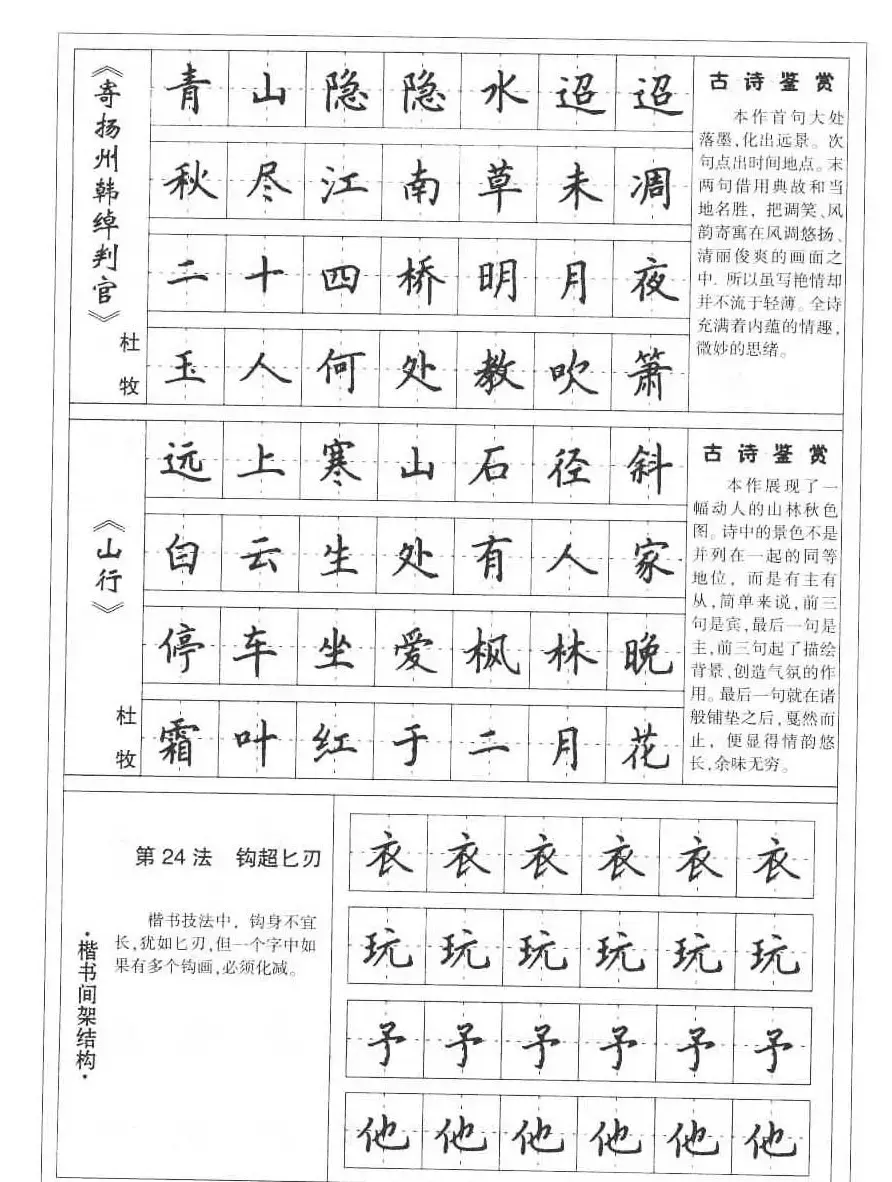 《寄扬州韩绰判官》
杜牧
青山隐隐水迢迢
秋尽江南草未凋
二十四桥明月夜
玉人何处教吹箫
古诗鉴赏
本作首句大处
落墨,化出远景。次
句点出时间地点。末
两句借用典故和当
地名胜,把调笑、风
韵寄寓在风调悠扬、
清丽俊爽的画面之
中.所以虽写艳情却
并不流于轻薄。全诗
充满着内蕴的情趣,
微妙的思绪。
《山行》
杜牧
远上寒山石径斜
白云生处有人家
停车坐爱枫林晚
霜叶红于二月花
古诗鉴赏
本作展现了一
幅动人的山林秋色
图。诗中的景色不是
并列在一起的同等
地位,而是有主有
从,简单来说,前三
句是宾,最后一句是
主,前三句起了描绘
背景、创造气氛的作
用。最后一句就在诸
般铺垫之后,戛然而
止,便显得情韵悠
长,余味无穷。
·楷书间架结构·
第24法 钩超匕刃
楷书技法中,钩身不宜
长,犹如匕刃,但一个字中如
果有多个钩画,必须化减。
衣衣衣衣衣衣
玩玩玩玩玩玩
予予予予予予
他他他他他他